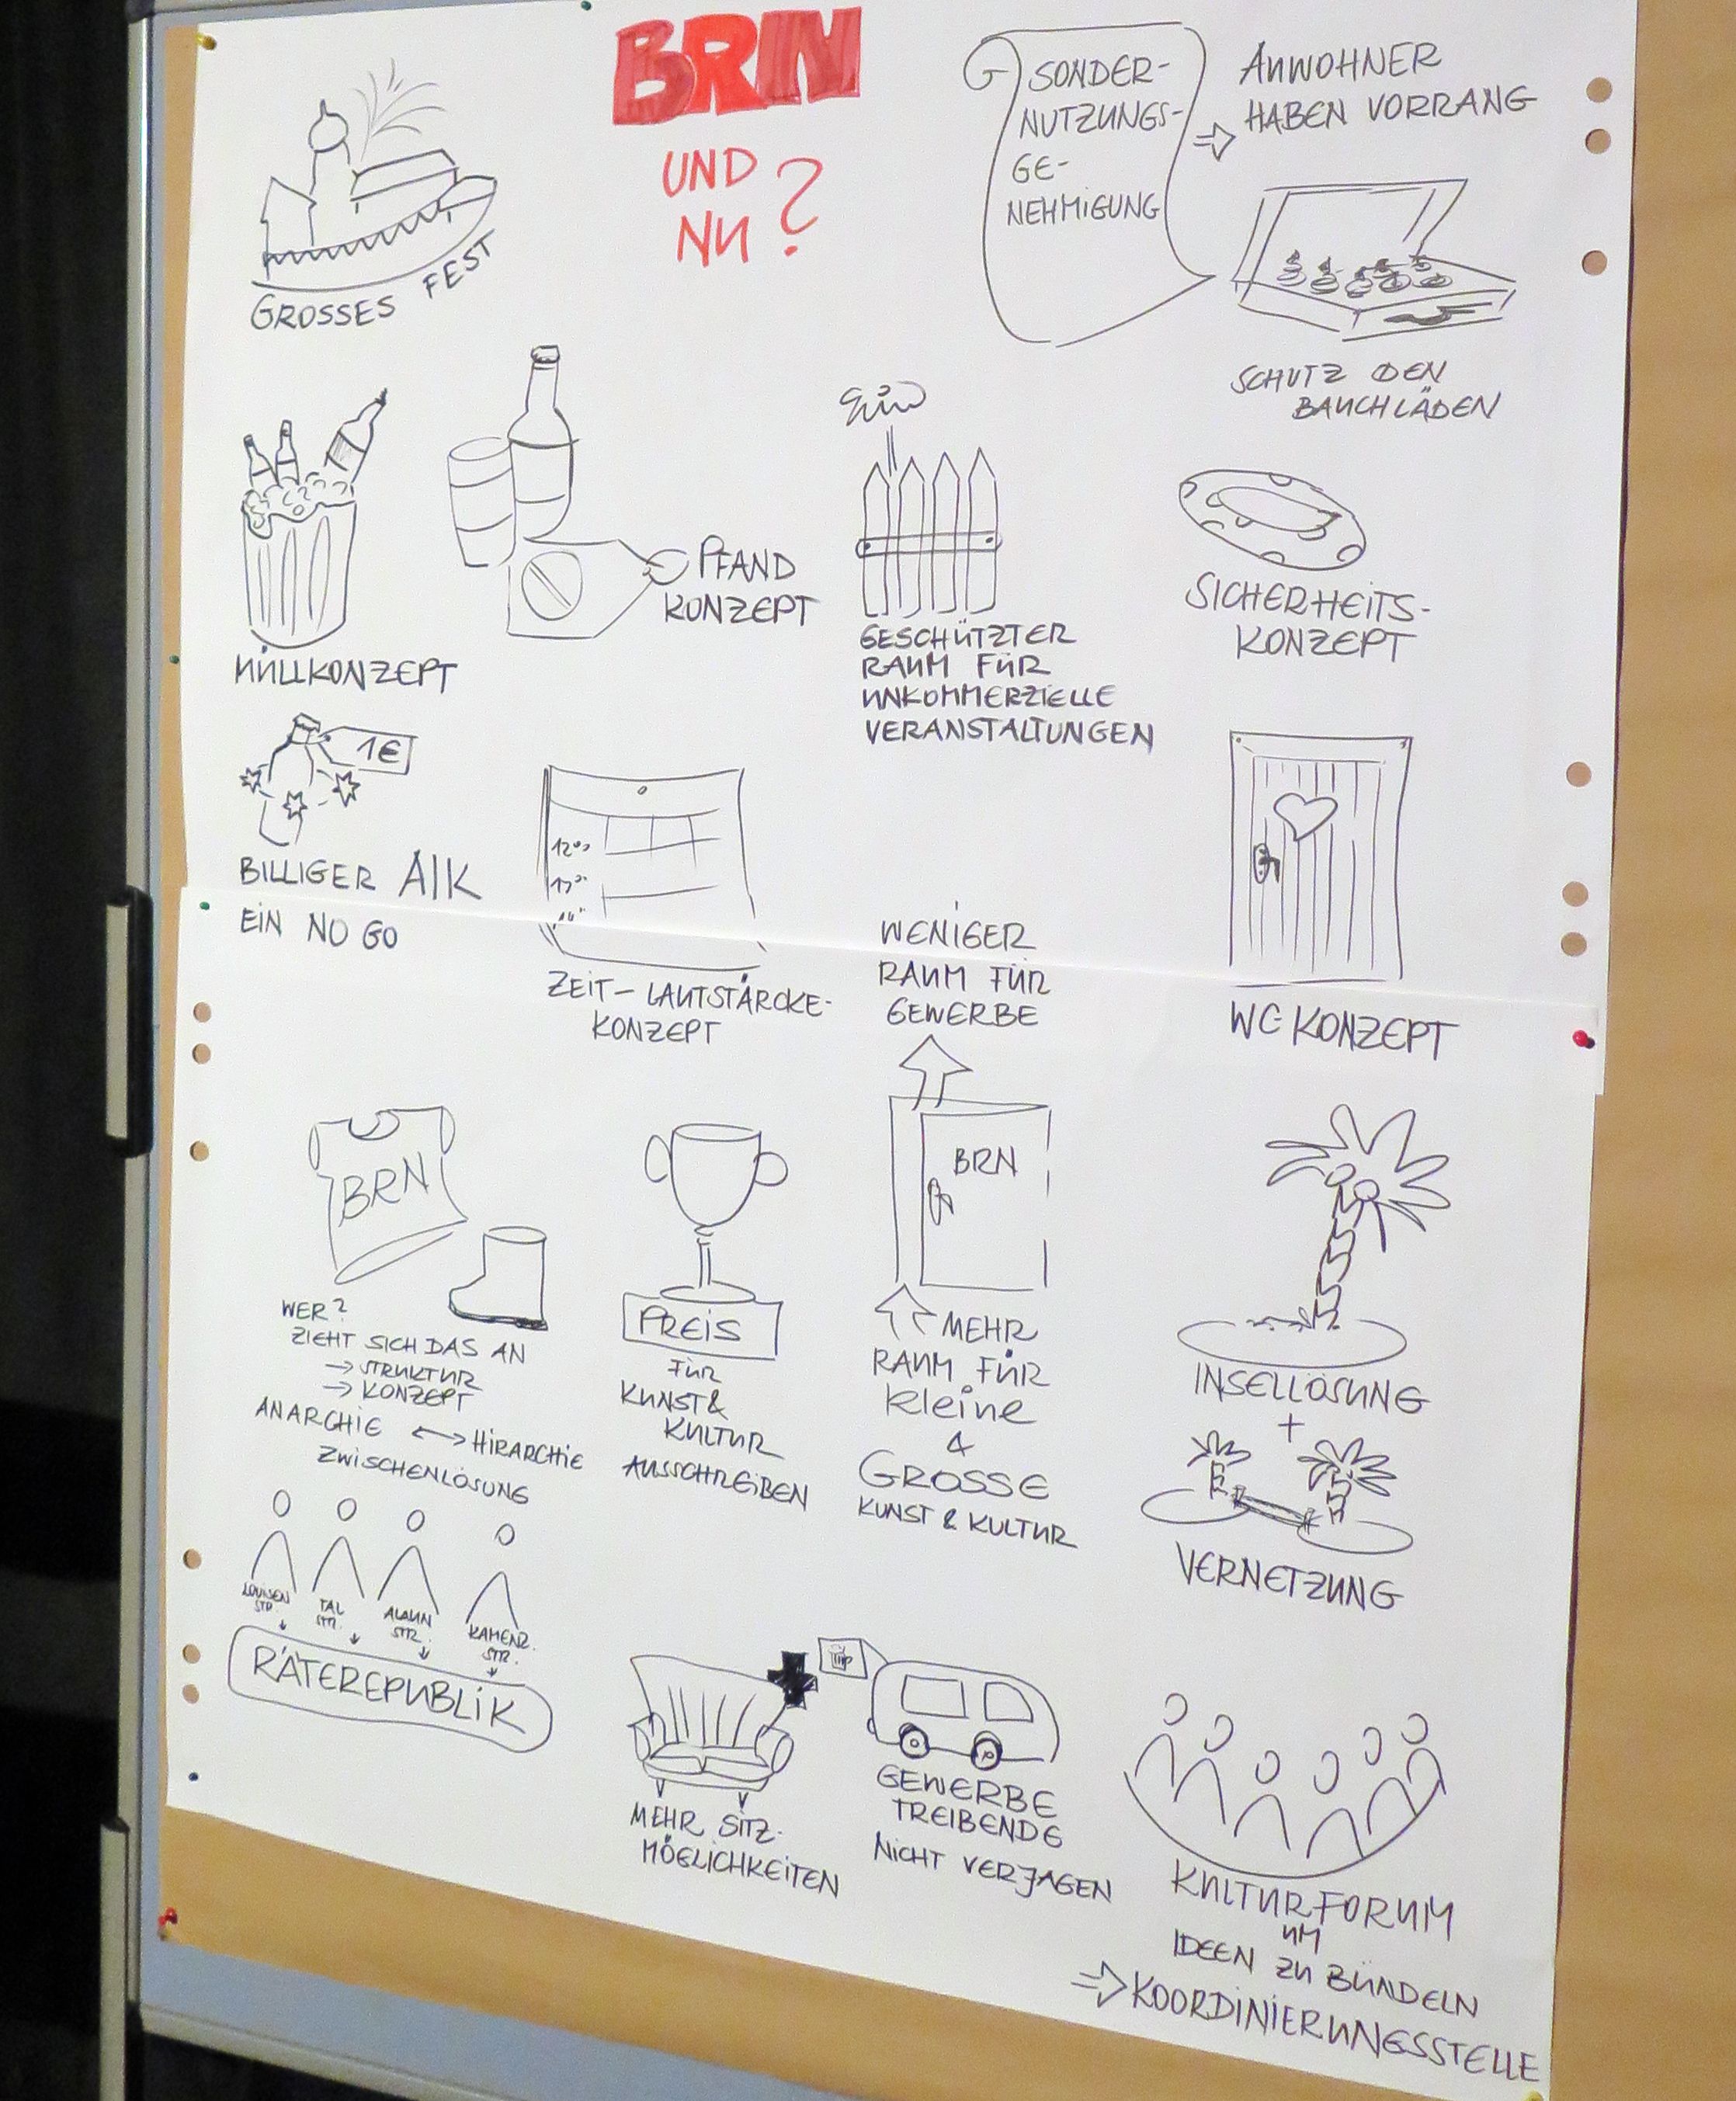 BRN
UND
NU?
SONDER-
NUTZUNGS-
GE-
NEHMIGUNG
ANWOHNER
HABEN VORRANG
GROSSES FEST
SCHUTZ DEN
BAUCHLÄDEN
MÜLLKONZEPT
PFAND
KONZEPT
GESCHÜTZTER
RAUM FÜR
UNKOMMERZIELLE
VERANSTALTUNGEN
SICHERHEITS-
KONZEPT
1€
BILLIGER Alk
EIN NO GO
12⁰⁰
ZEIT-LAUTSTÄRCKE-
KONZEPT
WENIGER
RAUM FÜR
GEWERBE
WC KONZEPT
BRN
WER?
ZIEHT SICH DAS AN
→ STRUKTUR
→ KONZEPT
ANARCHIE ↔ HIRARCHIE
ZWISCHENLÖSUNG
PREIS
FÜR
KUNST &
KULTUR
AUSSCHREIBEN
BRN
MEHR
RAUM FÜR
kleine
&
GROSSE
KUNST & KULTUR
INSELLÖSUNG
+
VERNETZUNG
LOUISEN
STR.
TAL
STR.
ALAUN
STR.
KAMENZ.
STR.
RÄTEREPUBLIK
MEHR SITZ-
MÖGLICHKEITEN
GEWERBE
TREIBENDE
NICHT VERJAGEN
KULTURFORUM
UM
IDEEN ZU BÜNDELN
⇒ KOORDINIERUNGSSTELLE